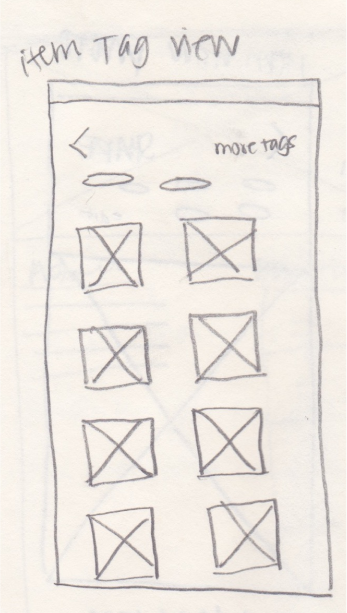 item Tag view
more tags